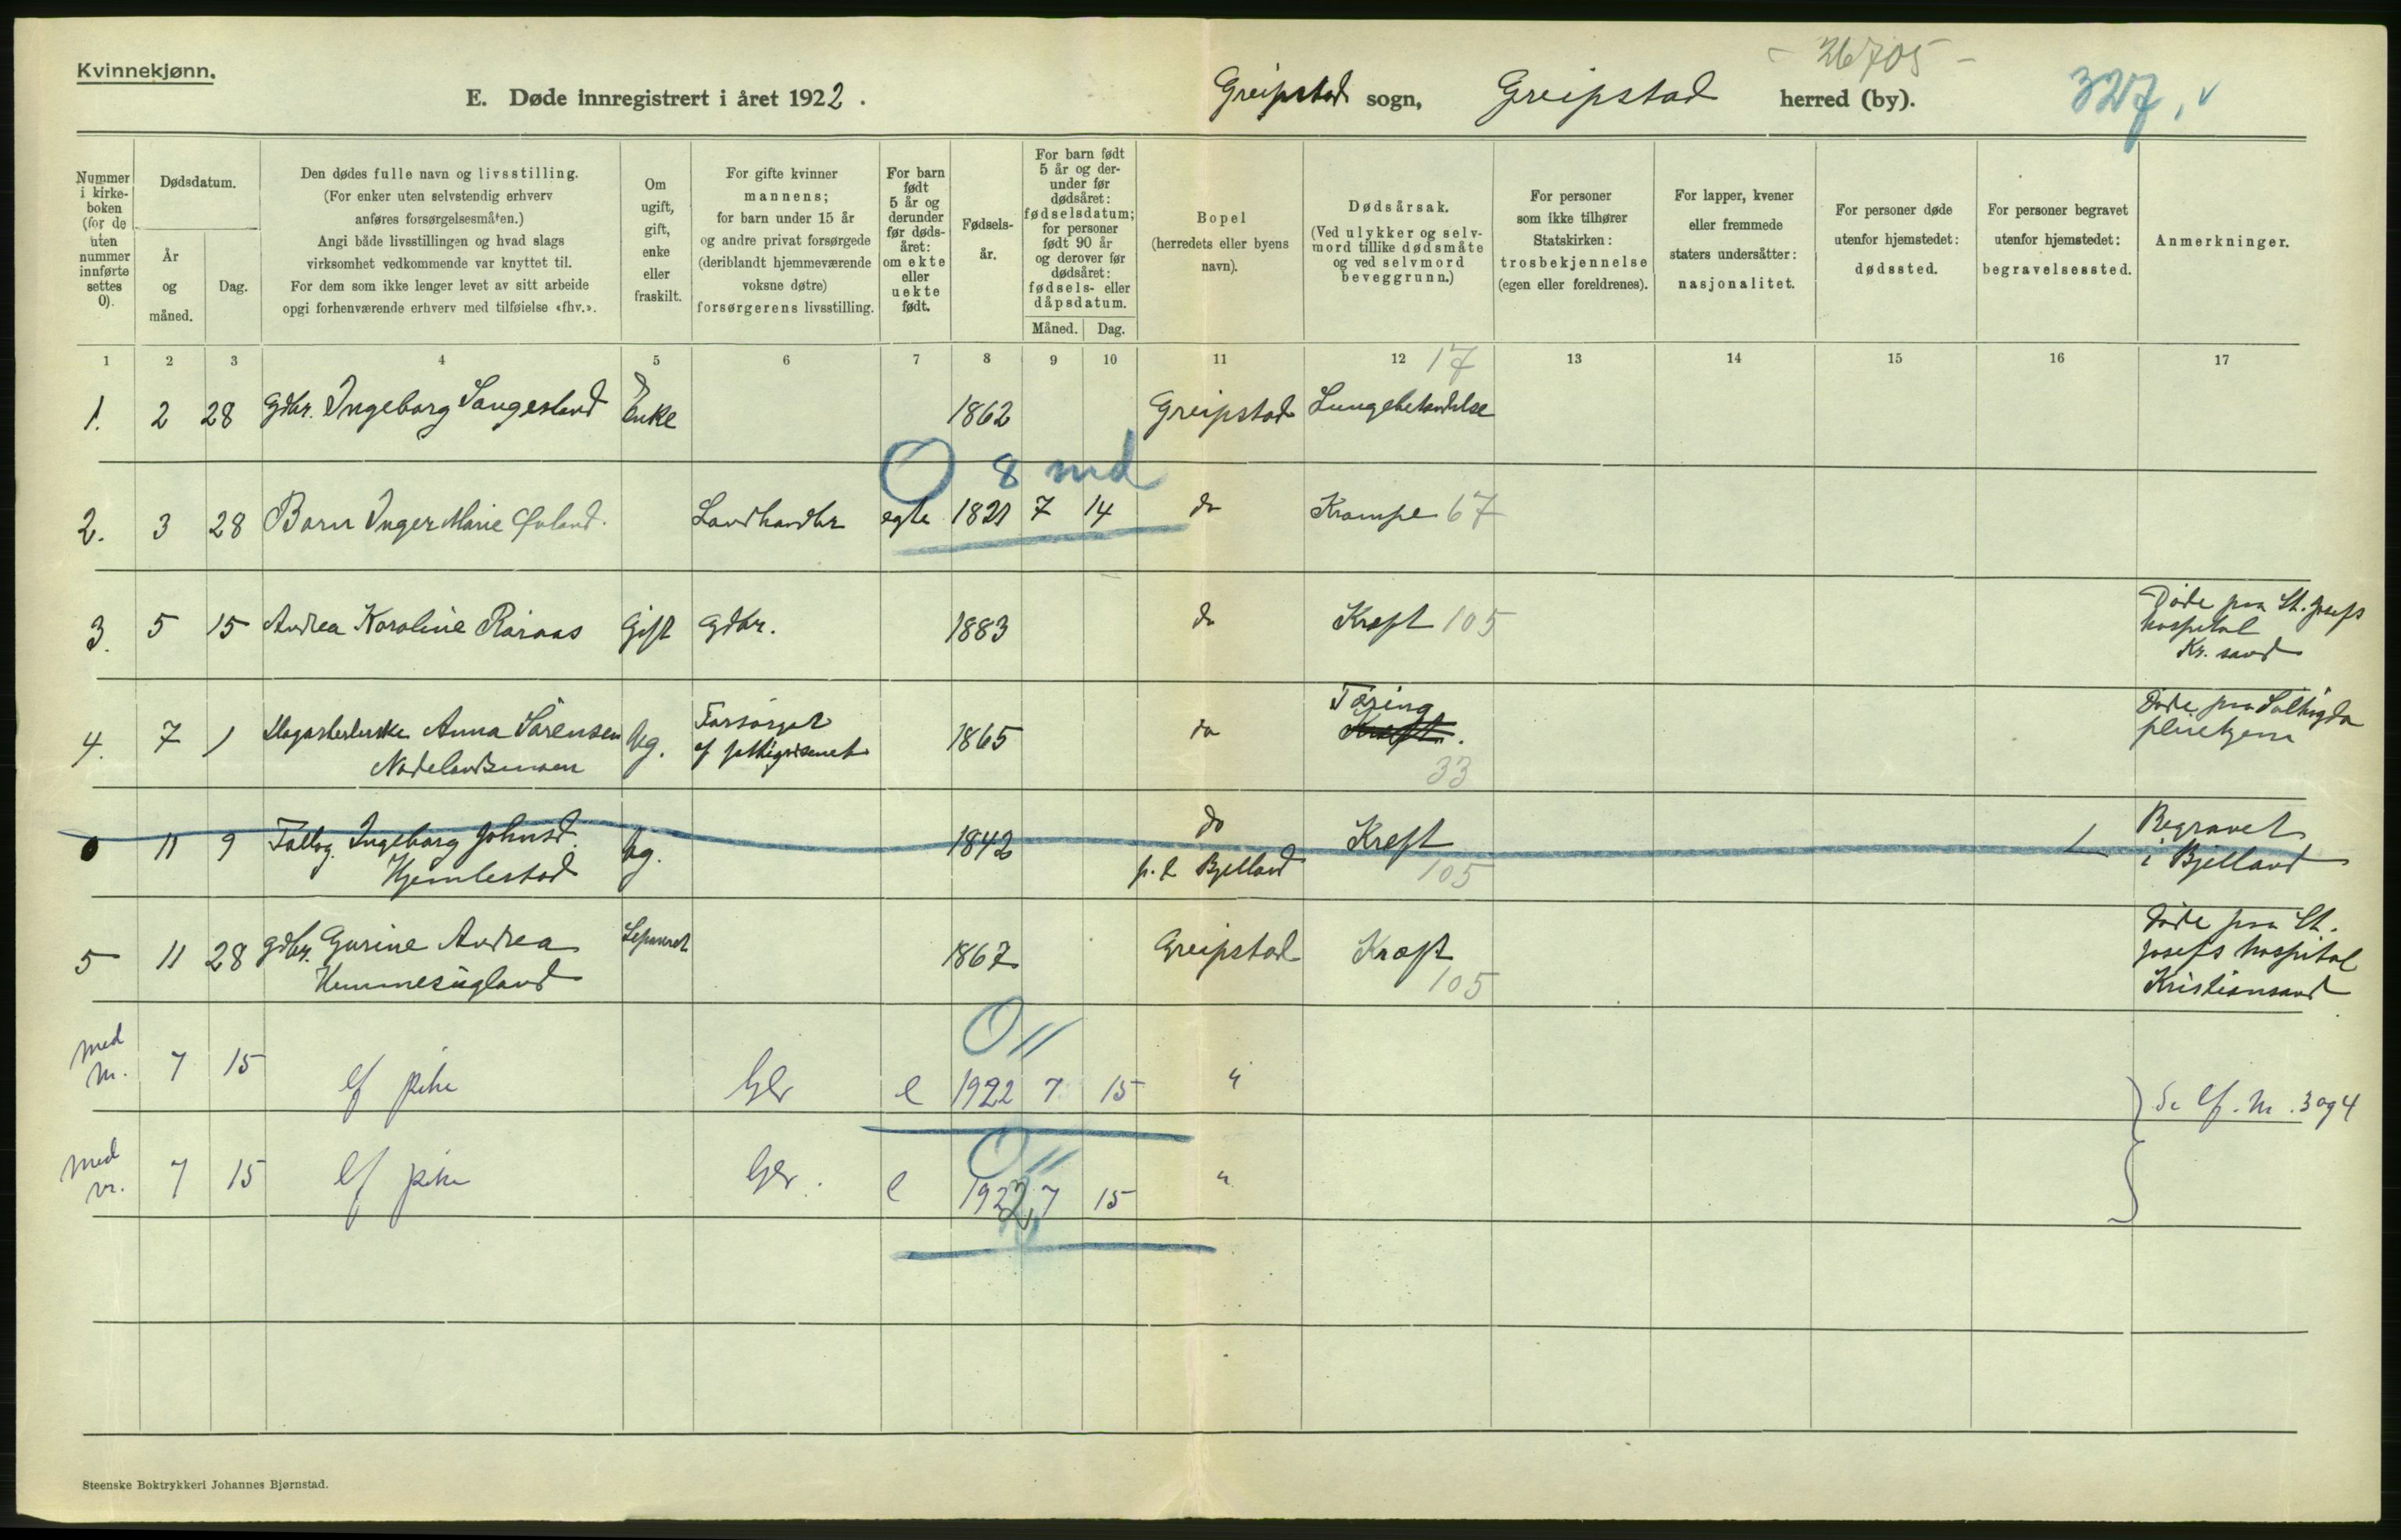 Kvinnekjønn.
E. Døde innregistrert i året 1922.
Greipstad sogn, Greipstad herred (by).
- 26705 -
327, v
Nummer i kirke-boken (for de uten nummer innførte settes 0).
Dødsdatum.
År og måned.
Dag.
Den dødes fulle navn og livsstilling.
(For enker uten selvstendig erhverv
anføres forsørgelsesmåten.)
Angi både livsstillingen og hvad slags
virksomhet vedkommende var knyttet til.
For dem som ikke lenger levet av sitt arbeide
opgi forhenværende erhverv med tilføielse «fhv.».
Om ugift, gift, enke eller fraskilt.
For gifte kvinner
mannens;
for barn under 15 år
og andre privat forsørgede
(deriblandt hjemmeværende
voksne døtre)
forsørgerens livsstilling.
For barn født 5 år og derunder før døds-året: om ekte eller uekte født.
Fødsels-år.
For barn født 5 år og der-under før dødsåret: fødselsdatum; for personer født 90 år og derover før dødsåret: fødsels- eller dåpsdatum.
Måned. Dag.
Bopel
(herredets eller byens
navn).
Dødsårsak.
(Ved ulykker og selv-
mord tillike dødsmåte
og ved selvmord
beveggrunn.)
For personer
som ikke tilhører
Statskirken:
trosbekjennelse
(egen eller foreldrenes).
For lapper, kvener
eller fremmede
staters undersåtter:
nasjonalitet.
For personer døde
utenfor hjemstedet:
dødssted.
For personer begravet
utenfor hjemstedet:
begravelsessted.
Anmerkninger.
1 2 3 4 5 6 7 8 9 10 11 12 13 14 15 16 17
17
1. 2 28 Gdbr. Ingeborg Sangesland Enke 1862 Greipstad Lungebetendelse
O 8 md
2. 3 28 Barn Inger Marie Øvland. Landhandlr egte 1821 7 14 do Krampe 67
3. 5 15 Andrea Karoline Raraas Gift Gdbr. 1883 do Kreft 105 Døde paa St. Josefs
hospital
Kr. sand
4. 7 1 Anna Sørensen Ug. Forsørget 1865 do Tæring Kreft. Døde paa
af fattigvesenet 33 pleiehjem
0 11 9 Ingeborg Johnsd. Ug. 1842 do Kreft Begravet
Hjemlestad p. t. Bjelland 105 i Bjelland
5 11 28 Gdbr. Gurine Andrea Separert 1867 Greipstad Kreft Døde paa St.
105 Josefs hospital
Kristiansand
O //
med nr. 7 15 lf pike Gbr e 1922 7 15 " Se lf. nr. 3 og 4
O //
med nr. 7 15 lf pike Gbr. e 1922 7 15 "
Steenske Boktrykkeri Johannes Bjørnstad.